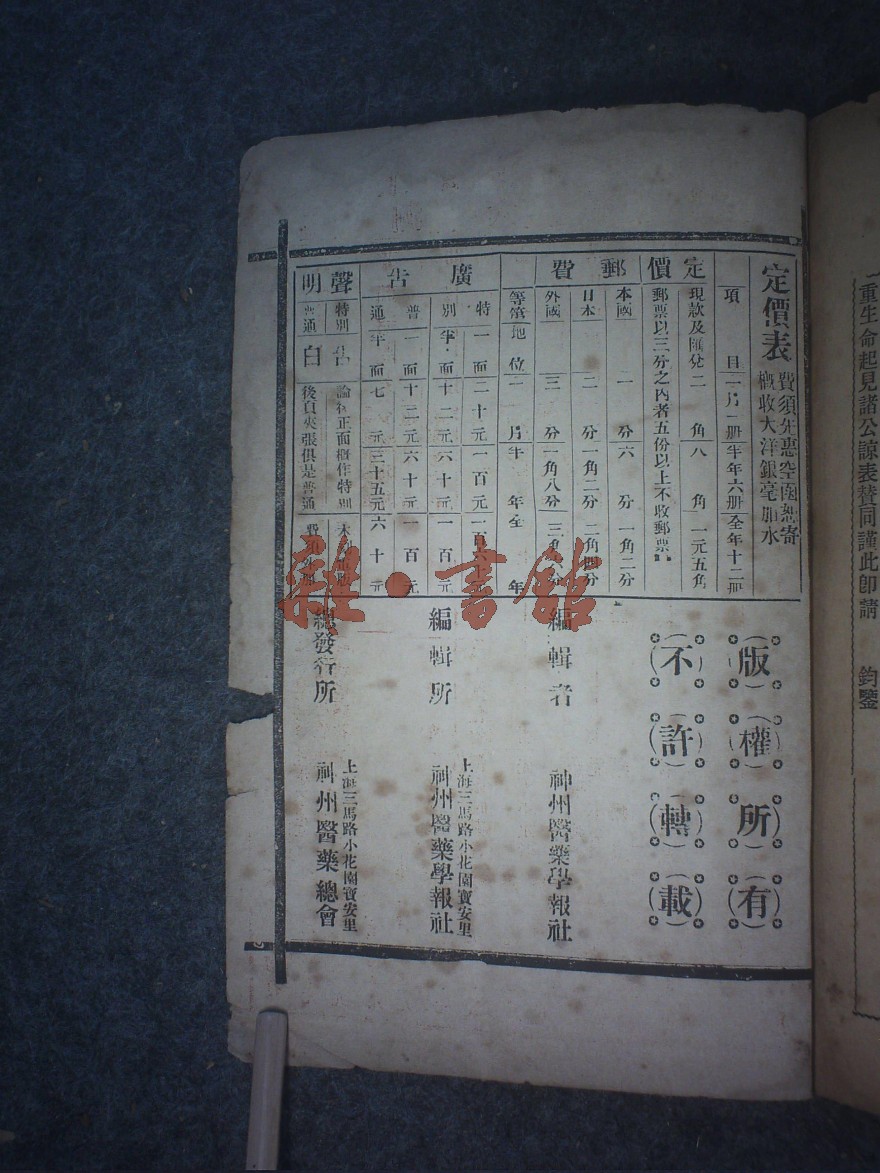 重生命起見諸公諒表贊同謹此卽請　鈞鑒
定價表
費須先惠空函恕寄
概收大洋銀毫加水
定價
項目　一月一册　半年六册　全年十二册
現款及匯兌　二角　八角　一元五角
郵票以三分之內者五份以上不收郵票
郵費
本國　一分　六分　一角二分
日本　二分　一角二分　二角四分
外國　三分　一角八分　三角六分
廣告
等第　地位　一月　半年　全年
特別　一面　二十元　一百元　一百六十元
半面　十二元　六十元　一百元
普通　一面　十二元　六十元　一百元
半面　七元　三十五元　六十元
聲明
特別
普通
告白
論後正面概作特別
後頁夾張俱是普通
版權所有
不許轉載
編輯者　神州醫藥學報社
編輯所　上海三馬路小花園寶安里
神州醫藥學報社
總發行所　上海三馬路小花園寶安里
神州醫藥總會
雜·書館